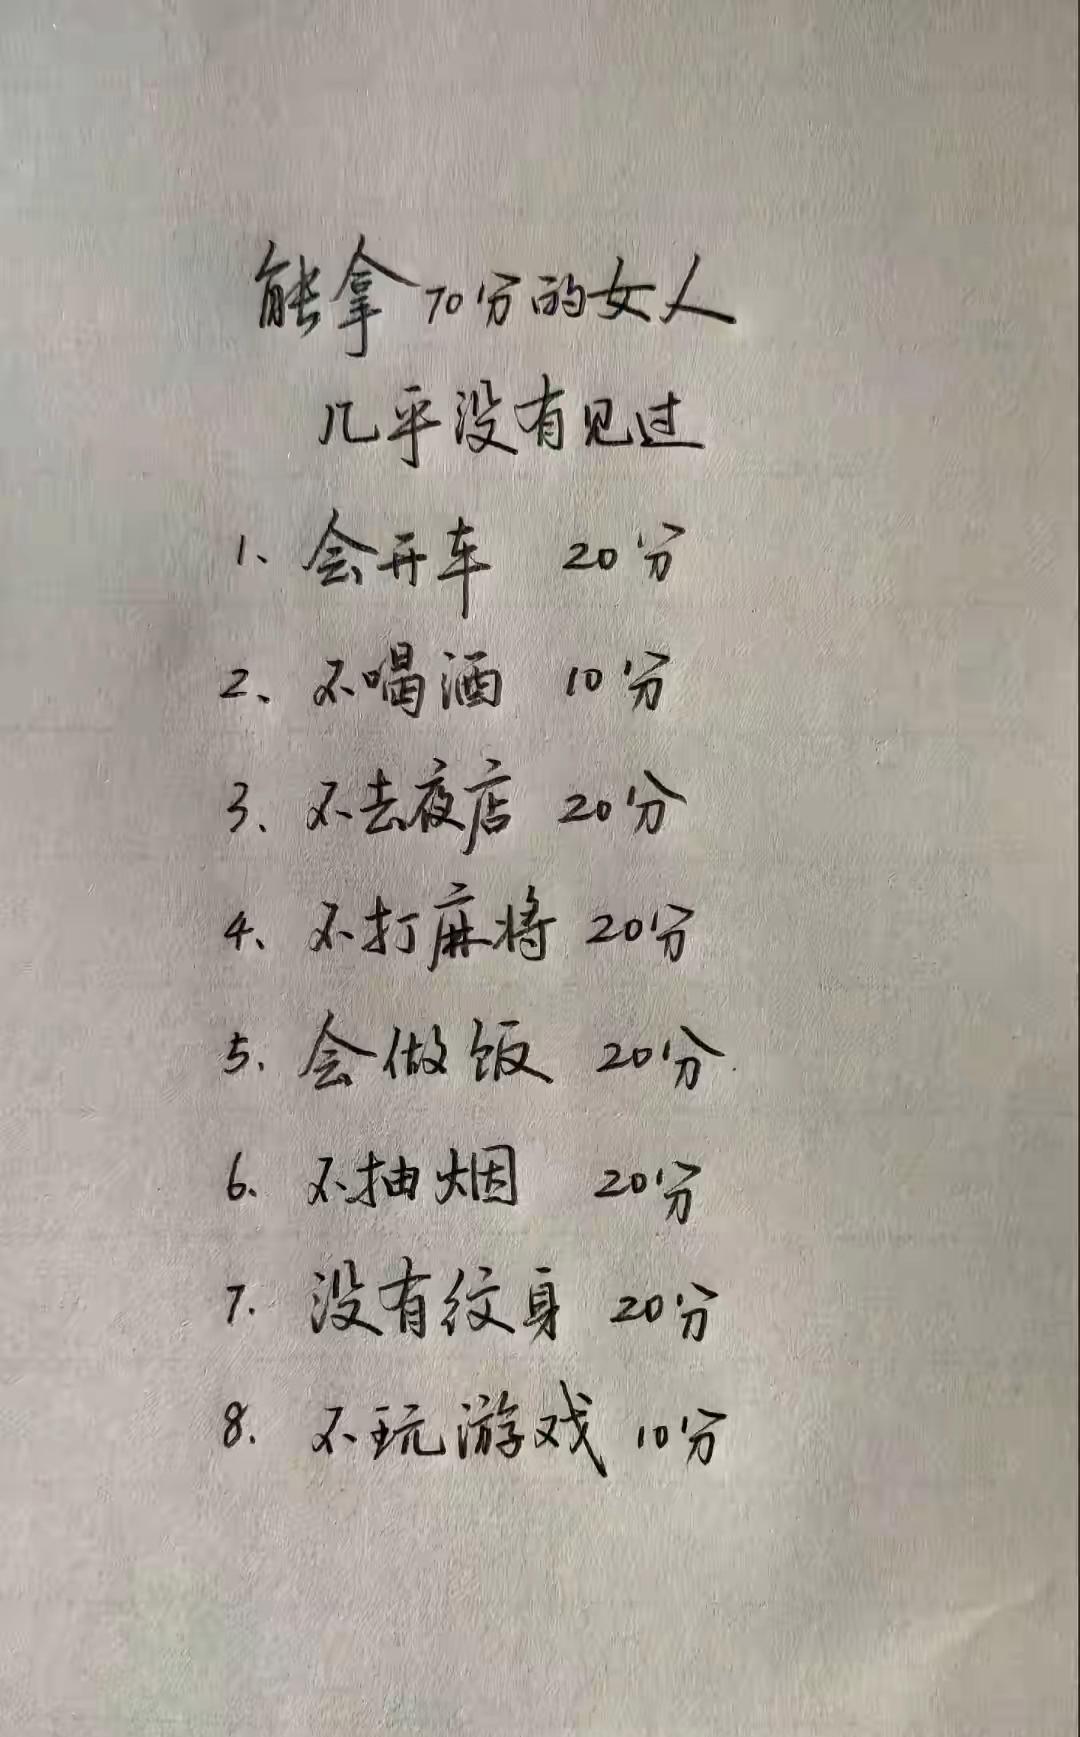 能拿70分的女人
几乎没有见过
1、会开车 20分
2、不喝酒 10分
3、不去夜店 20分
4、不打麻将 20分
5.会做饭 20分.
6.不抽烟 20分
7.没有纹身 20分
8.不玩游戏 10分